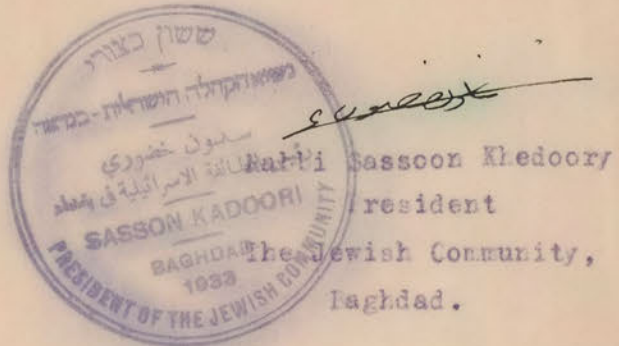 ששון כצורי
נשיא הקהלה הישראלית - בבגדאד
ساسون خضوري
رئيس الطائفة الاسرائيلية في بغداد
SASSON KADOORI
BAGHDAD
1933
PRESIDENT OF THE JEWISH COMMUNITY
Rabbi Sassoon Khedoory
President
The Jewish Community,
Baghdad.